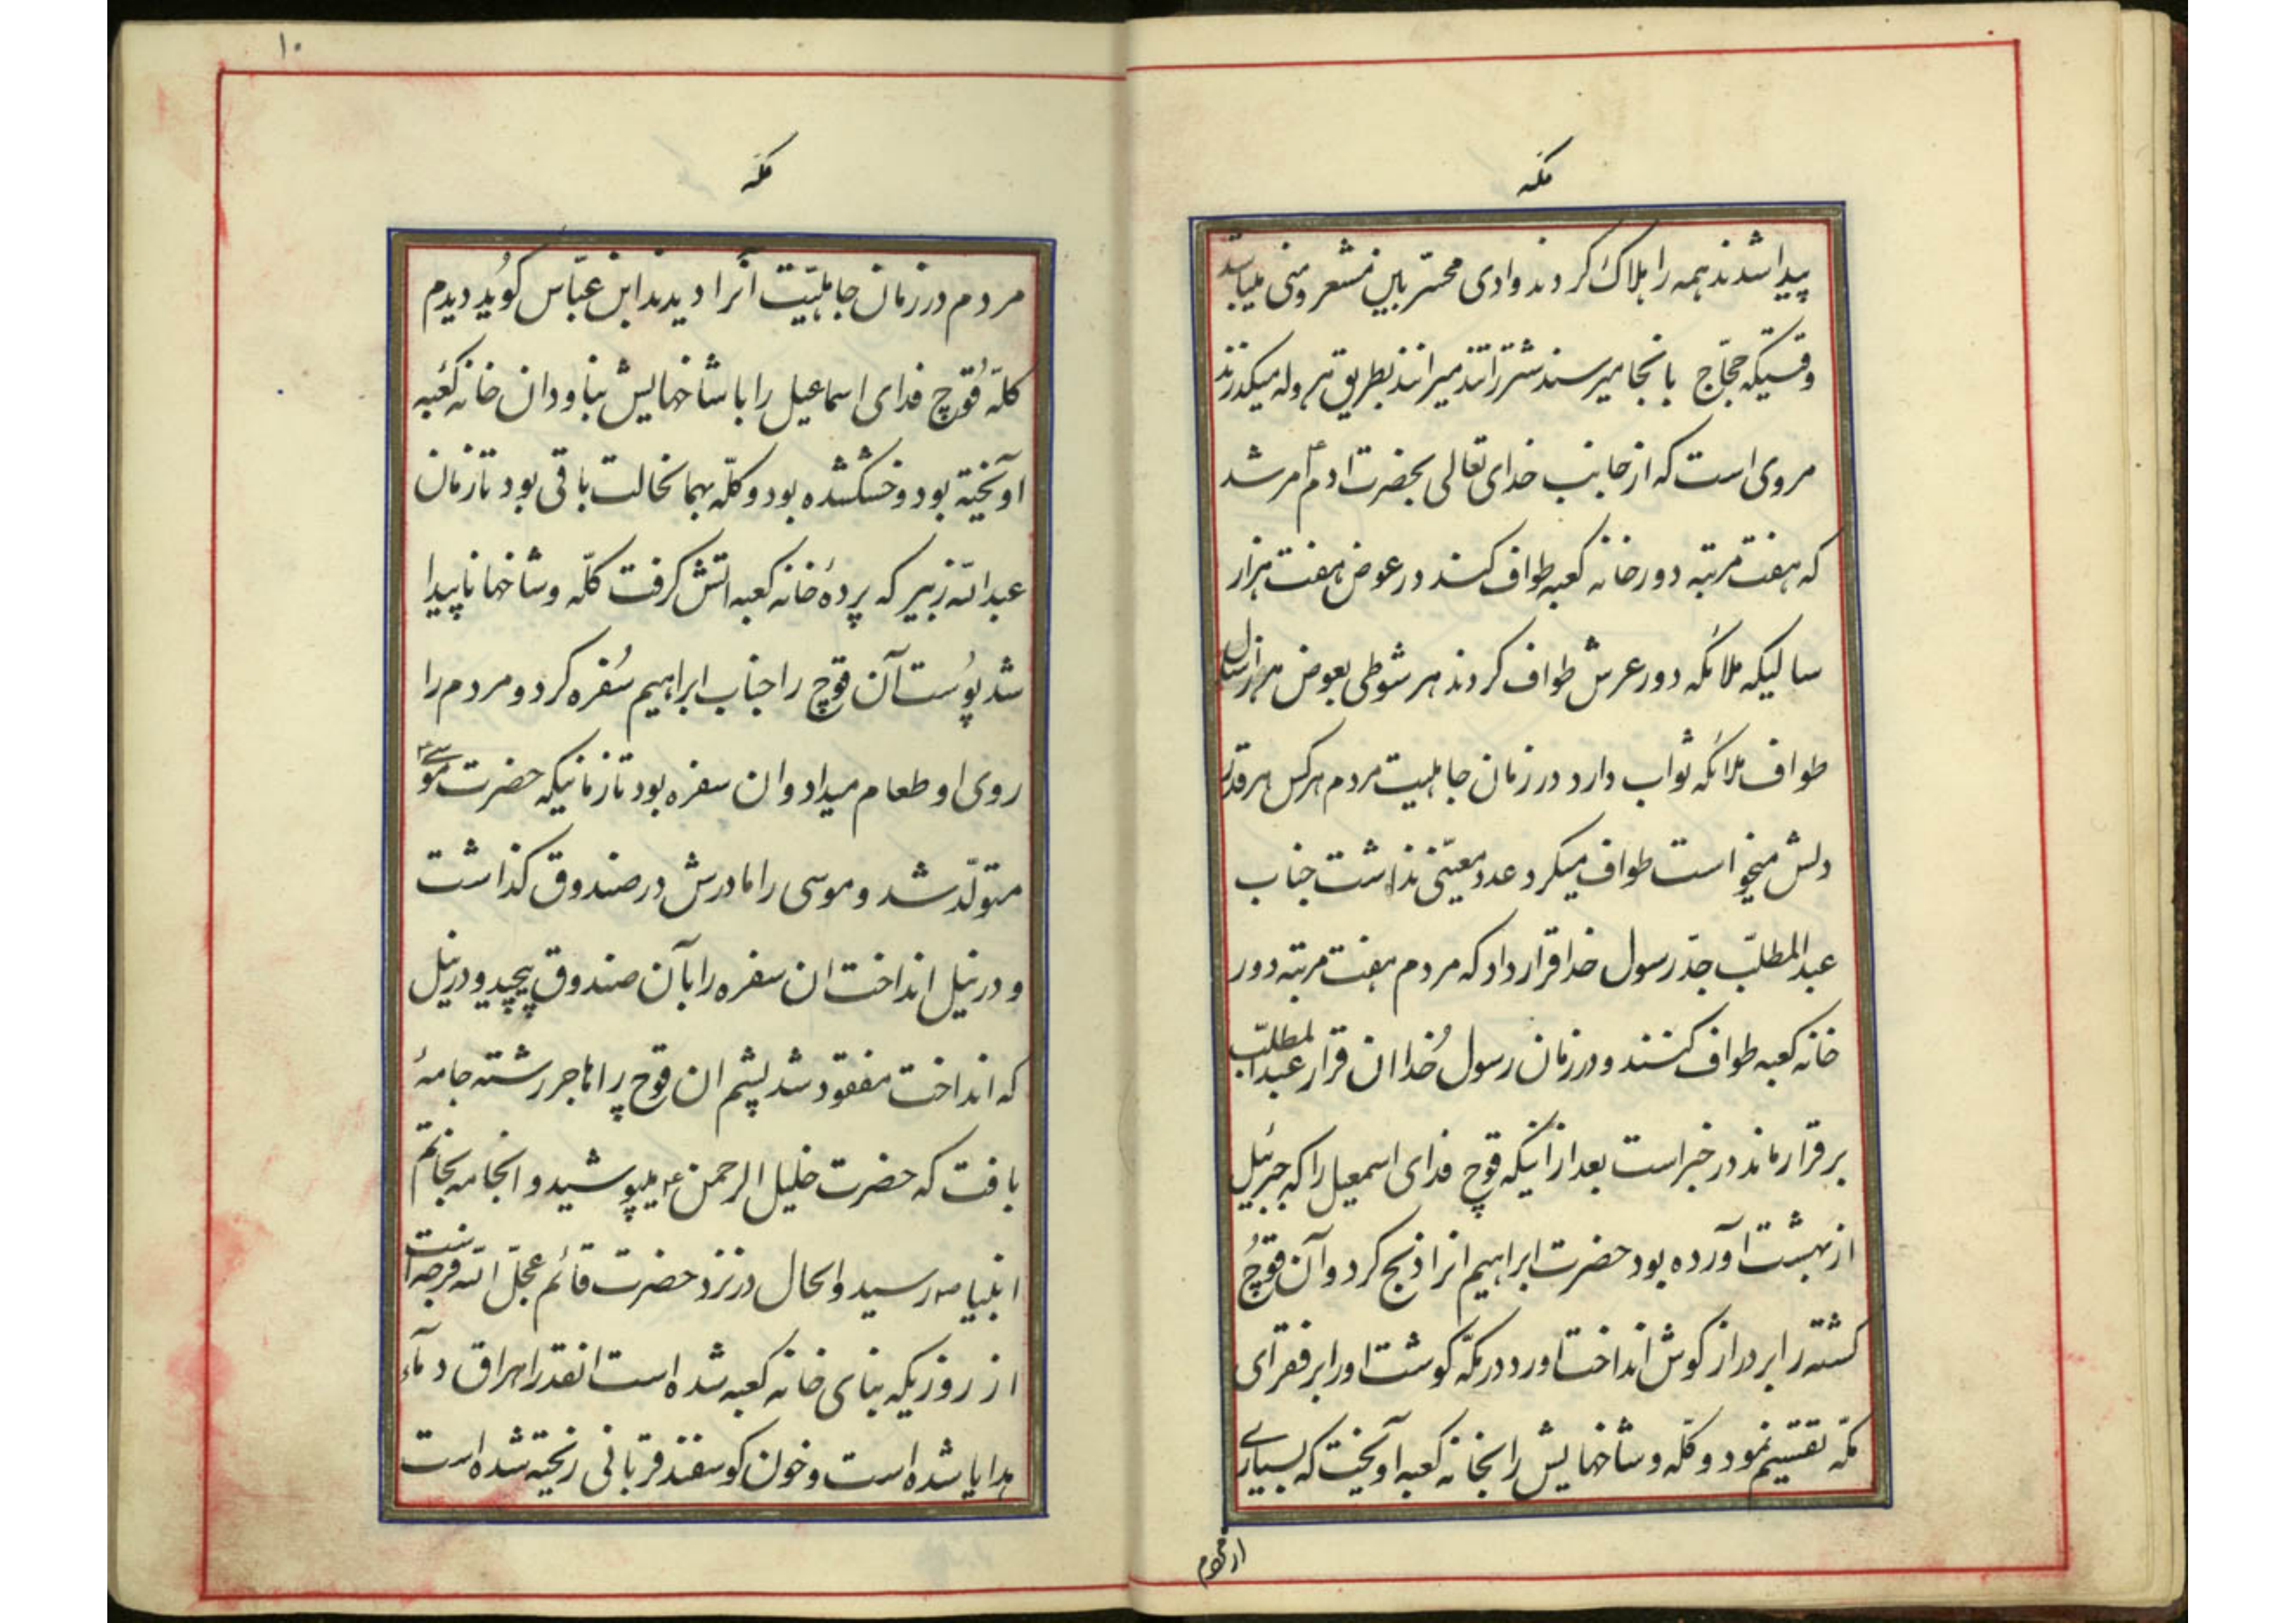 مکه
پیدا شدند همه را هلاک کردند وادی محسّر بین مشعر و منی میباشد
وقتیکه حجّاج بانجا میرسند شتر را تند میرانند بطریق هروله میکذرند
مروی است که از جانب خدای تعالی بحضرت ادم ع امر شد
که هفت مرتبه دور خانه کعبه طواف کند در عوض هفت هزار
سالیکه ملائکه دور عرش طواف کردند هر شوطی بعوض هزار سال
طواف ملائکه ثواب دارد در زمان جاهلیت مردم هرکس هر قدر
دلش میخواست طواف میکرد عدد معیّنی نداشت جناب
عبدالمطلّب جدّ رسول خدا قرار داد که مردم هفت مرتبه دور
خانه کعبه طواف کنند و در زمان رسول خُدا ان قرار عبدالمطلّب
برقرار ماند در خبر است بعد از انیکه قوچ فدای اسمعیل را که جبرئیل
از بهشت آورده بود حضرت ابراهیم انرا ذبح کرد و آن قوچُ
کشته را بر دراز کوش انداخت اورد در مکّه کوشت او را بر فقرآی
مکّه تقسیم نمود و کلّه و شاخهایش را بخانه کعبه آویخت که بسیاری
از مردم
۱۰
مکه
مردم در زمان جاهلیّت آنرا دیدند ابن عبّاس کوُید دیدم
کلّه قُوچ فدای اسماعیل را با شاخهایش بناودان خانه کعبه
اویخته بود و خشکشده بود و کلّه بهمانحالت باقی بود تا زمان
عبداللّه زبیر که پردهٔ خانه کعبه اتش کرفت کلّه و شاخها ناپیدا
شد پوُست آن قوچ را جناب ابراهیم سُفره کرد و مردم را
روی او طعام میداد و ان سفره بود تا زمانیکه حضرت موسی ع
متولّد شد و موسی را مادرش در صندوق کذاشت
و در نیل انداخت ان سفره را بآن صندوق پیچید و در نیل
که انداخت مفقود شد پشم ان قوچ را هاجر رشته جامهٔ
بافت که حضرت خلیل الرحمن ع میپوشید و انجامه بخاتم
انبیا ص رسید و الحال در نزد حضرت قائم عجّل اللّه فرجه است
از روزیکه بنای خانه کعبه شده است انقدر اهراق دمآء
هدایا شده است و خون کوسفند قربانی ریخته شده است